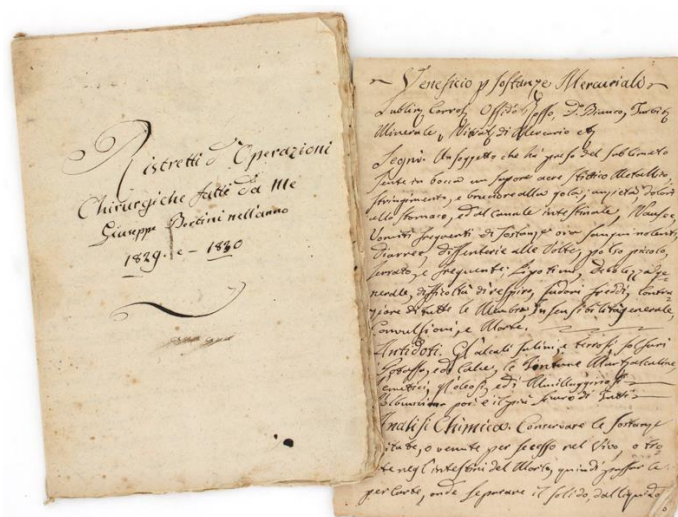 Ristretti d'Operazioni
Chirurgiche fatte da me
Giuseppe Bertini nell'anno
1829. e - 1830
Veneficio p Sostanze Mercuriali
Sublim. Corros. Ossido Rosso, D.° Bianco, Turbit
Minerale, Nitrati di Mercurio etc
Segni. Un soggetto che hà preso del Sublimato
Sente in bocca un sapore acre stittico Metallico,
stringimento, e bruciore alla gola, ansietà dolori
allo stomaco, ed al canale intestinale, Nausee,
Vomiti frequenti di sostanze ora sanguinolenti,
Diarree, dissenterie alle Volte, polso piccolo,
serrato, e frequente, Lipotimie, Debolezza ge
nerale, difficoltà di respiro, sudori freddi, contra
zione di tutte le Membra, insensibilità generale,
Convulsioni, e Morte.
Antidoti. Gli alcali salini, e terrosi, solfuri
Potassa, e di Calce, le
emetici, gl'oleosi, ed i Mucilagginosi
poi è il più sicuro di tutti
Analisi Chimica. Conservare le sostanze
vitate, o venute per secesso nel Vivo, o tro
te negl'intestini del Morto, quindi passar le
per Carta, onde separare il solido, dal liquido